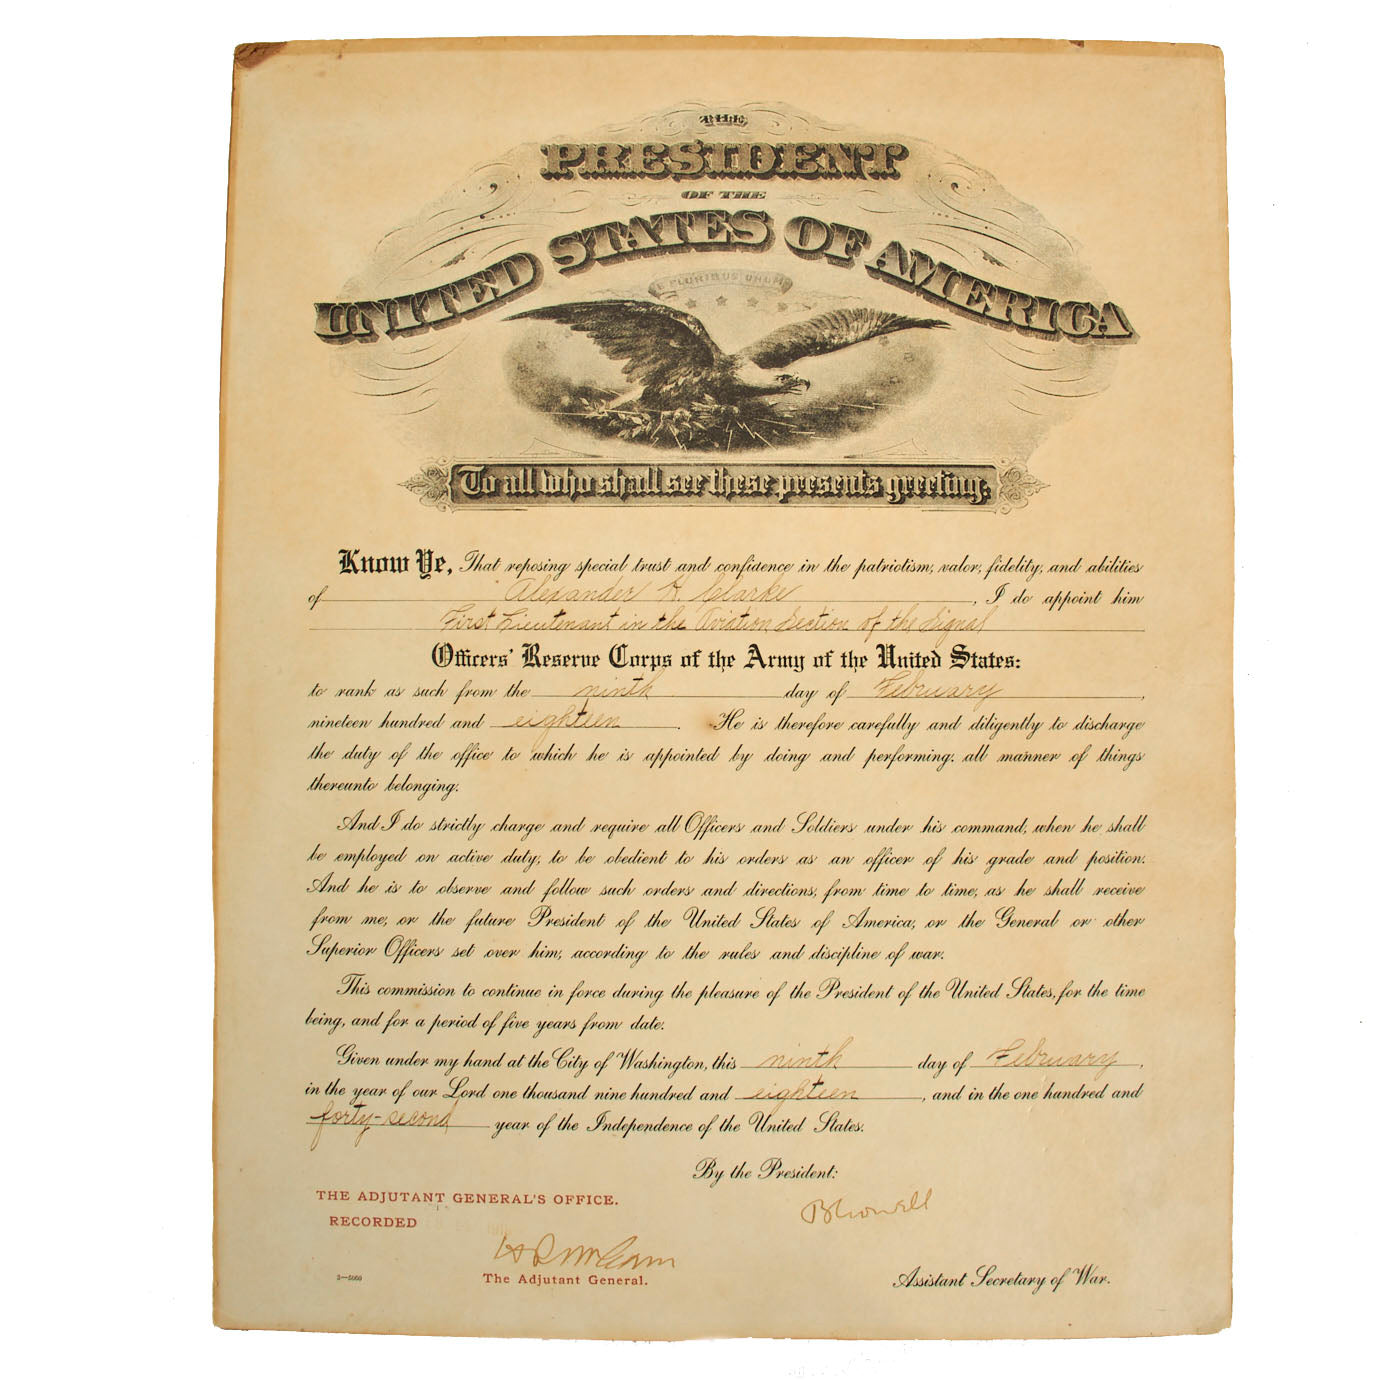 THE
PRESIDENT
OF THE
UNITED STATES OF AMERICA
E PLURIBUS UNUM
To all who shall see these presents greeting:
Know Ye, That reposing special trust and confidence in the patriotism, valor, fidelity, and abilities
of Alexander H. Clarke, I do appoint him
First Lieutenant in the Aviation Section of the Signal
Officers' Reserve Corps of the Army of the United States:
to rank as such from the ninth day of February,
nineteen hundred and eighteen. He is therefore carefully and diligently to discharge
the duty of the office to which he is appointed by doing and performing all manner of things
thereunto belonging.
And I do strictly charge and require all Officers and Soldiers under his command, when he shall
be employed on active duty, to be obedient to his orders as an officer of his grade and position.
And he is to observe and follow such orders and directions, from time to time, as he shall receive
from me, or the future President of the United States of America, or the General or other
Superior Officers set over him, according to the rules and discipline of war.
This commission to continue in force during the pleasure of the President of the United States, for the time
being, and for a period of five years from date.
Given under my hand at the City of Washington, this ninth day of February,
in the year of our Lord one thousand nine hundred and eighteen, and in the one hundred and
forty-second year of the Independence of the United States.
By the President:
THE ADJUTANT GENERAL'S OFFICE.
RECORDED
The Adjutant General.
3—5060
Assistant Secretary of War.